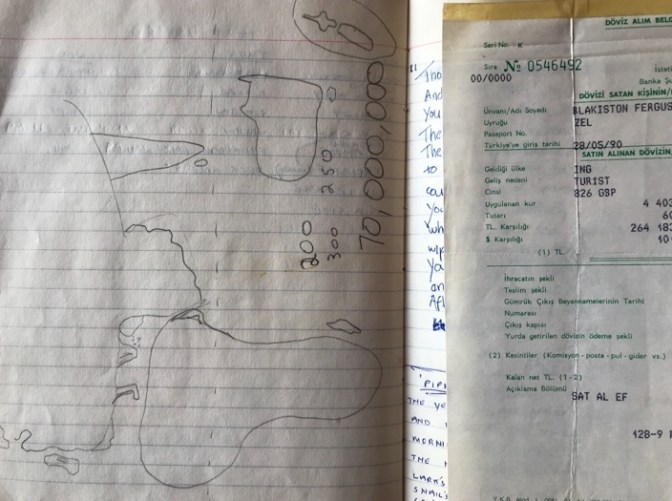 200
300
350
70,000,000
"Tho
And
You
The
The
to
You
wh
wip
Ya
an
Aft
'PIP
THE YE
AND
MORNI
THE
LARK'S
SNAIL'S
DÖVİZ ALIM BELG
Seri No. K
Sıra No 0546492
00/0000
Banka Şu
DÖVİZİ SATAN KİŞİNİN/
Unvanı/Adı Soyadı BLAKISTON FERGUS
Uyruğu ZEL
Pasaport No.
Türkiye'ye giriş tarihi 28/05/90
SATIN ALINAN DÖVİZİN
Geldiği ülke ING
Geliş nedeni TURIST
Cinsi 826 GBP
Uygulanan kur 4 403
Tutarı 60
TL. Karşılığı 264 183
$ Karşılığı 10
(1) TL.
İhracatın şekli
Teslim şekli
Gümrük Çıkış Beyannamelerinin Tarihi
Numarası
Çıkış kapısı
Yurda getirilen dövizin ödeme şekli
(2) Kesintiler (Komisyon - posta - pul - gider vs.)
Kalan net TL. (1-2)
Açıklama Bölümü
SAT AL EF
128-9